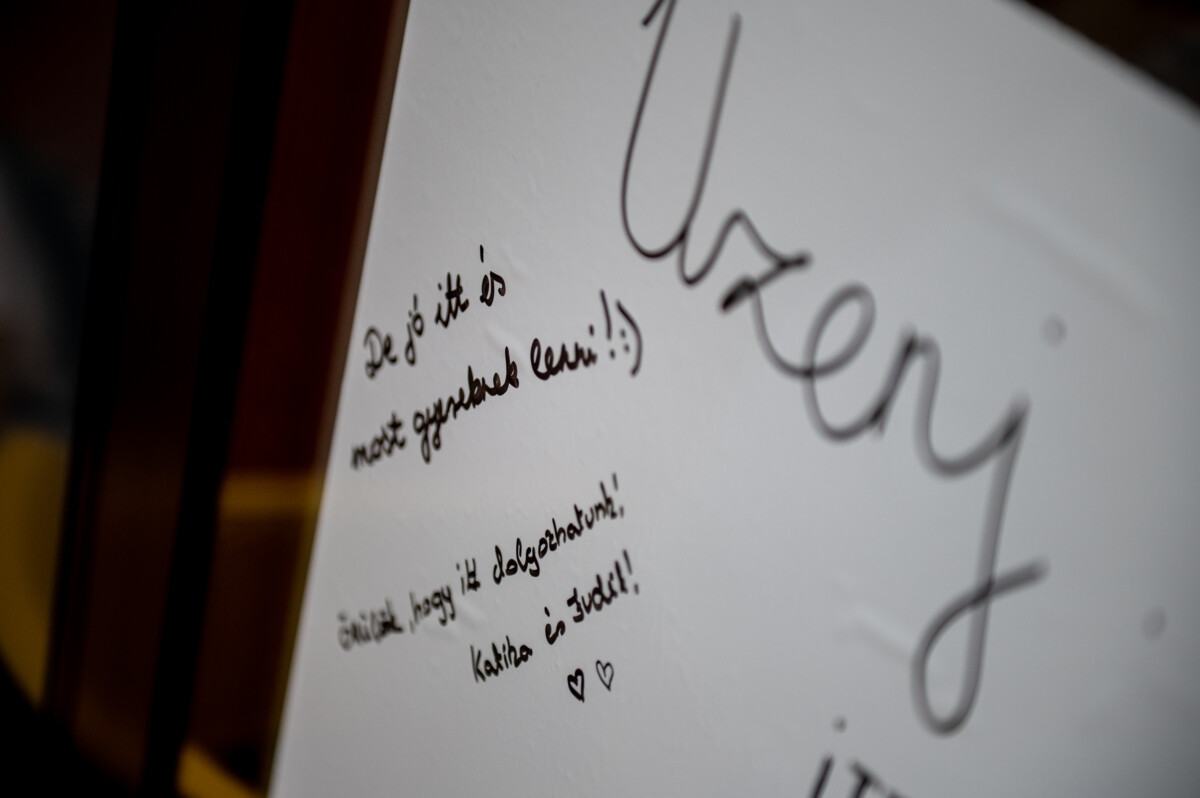 Üzenj
itt
De jó itt és
most gyereknek lenni! :)
örülök, hogy itt dolgozhatunk!
Katika és Judit!
♡ ♡